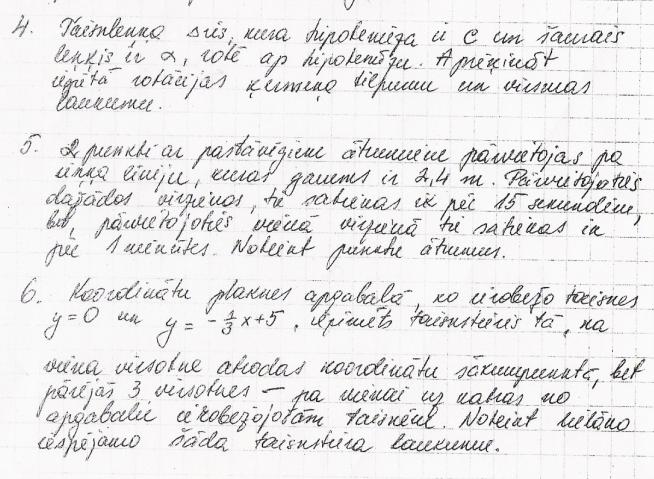 4. Taisnleņķa Δris, kura hipotenūza ir c un šaurais
leņķis ir α, rotē ap hipotenūzu. Aprēķināt
iegūtā rotācijas ķermeņa tilpumu un virsmas
laukumu.
5. 2 punkti ar pastāvīgiem ātrumiem pārvietojas pa
riņķa līniju, kuras garums ir 2,4 m. Pārvietojoties
dažādos virzienos, tie satiekas ik pēc 15 sekundēm,
bet, pārvietojoties vienā virzienā tie satiekas ik
pēc 1 minūtes. Noteikt punktu ātrumus.
6. Koordinātu plaknes apgabalā, ko ierobežo taisnes
y=0 un y = -1/3 x+5, iezīmēts taisnstūris tā, ka
viena virsotne atrodas koordinātu sākumpunktā, bet
pārējās 3 virsotnes – pa vienai uz katras no
apgabalu ierobežojošām taisnēm. Noteikt lielāko
iespējamo šāda taisnstūra laukumu.